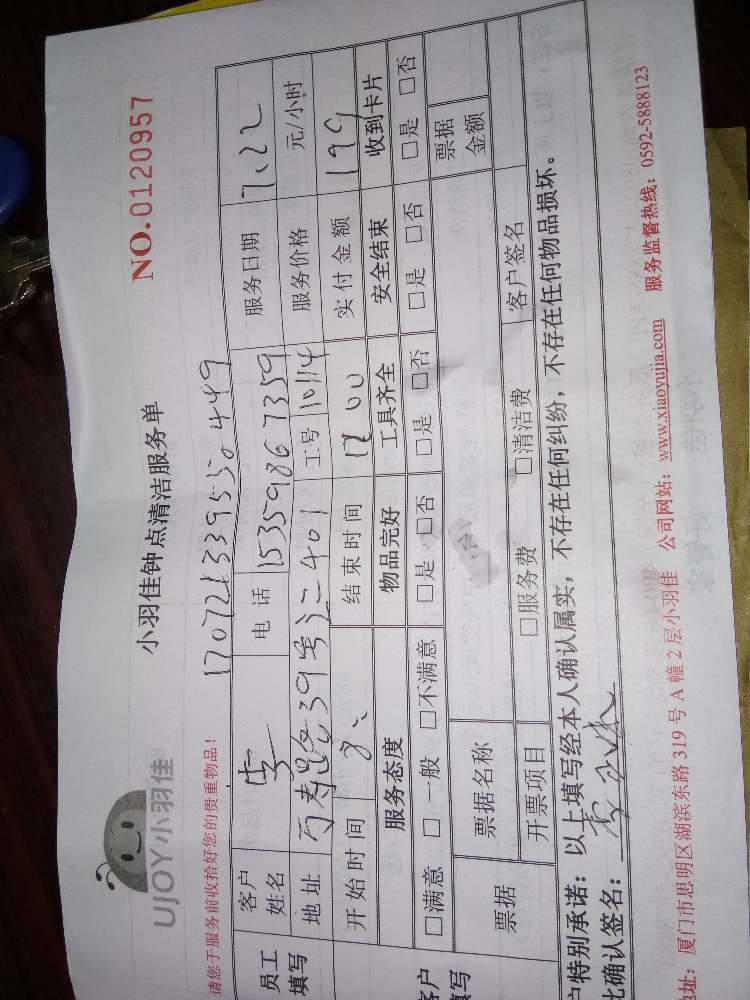 UJOY小羽佳
小羽佳钟点清洁服务单
NO.0120957
请您于服务前收拾好您的贵重物品!
170721339550449
员工填写
客户姓名 李 电话 15359867359 服务日期 7.22
地址 万寿路39号之二401 工号 10114 服务价格 元/小时
开始时间 8: 结束时间 12 00 实付金额 199
服务态度 物品完好 工具齐全 安全结束 收到卡片
□满意 □一般 □不满意 □是 □否 □是 □否 □是 □否 □是 □否
客户填写
票据 票据名称 票据金额
开票项目 □服务费 □清洁费 客户签名
户特别承诺:以上填写经本人确认属实,不存在任何纠纷,不存在任何物品损坏。
此确认签名:
地址:厦门市思明区湖滨东路319号A幢2层小羽佳 公司网站:www.xiaoyujia.com 服务监督热线:0592-5888123